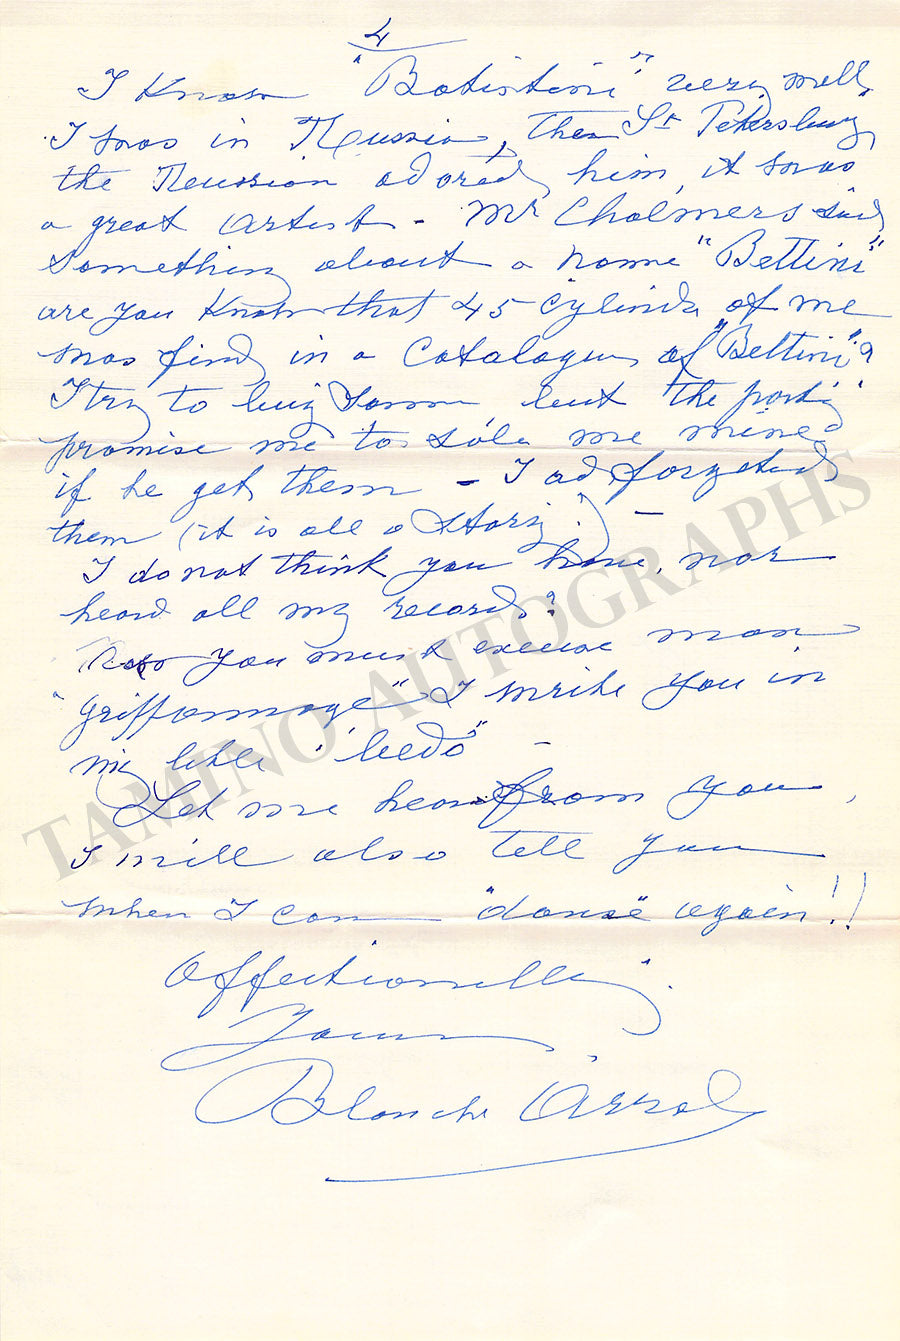 4
I know "Batistini" very well,
I was in Russia, then St Petersburg,
the Russion adored him, it was
a great artist - Mr Chalmers said
something about a name "Bettini"
are you know that 45 cylinds of me
was find in a Catalogue of "Bettini"?
I try to buy some, but the party
promise me to sole me mine
if he get them - I ad forgeted
them (it is all a story!) -
I do not think you have, nor
heard all my records?
you must excuse mon
"griffonnage" I write you in
my little "bedo" -
Let me hear from you,
I will also tell you
when I can "danse" again!!
Affectionelly
Yours
Blanche Arral
TAMINO AUTOGRAPHS